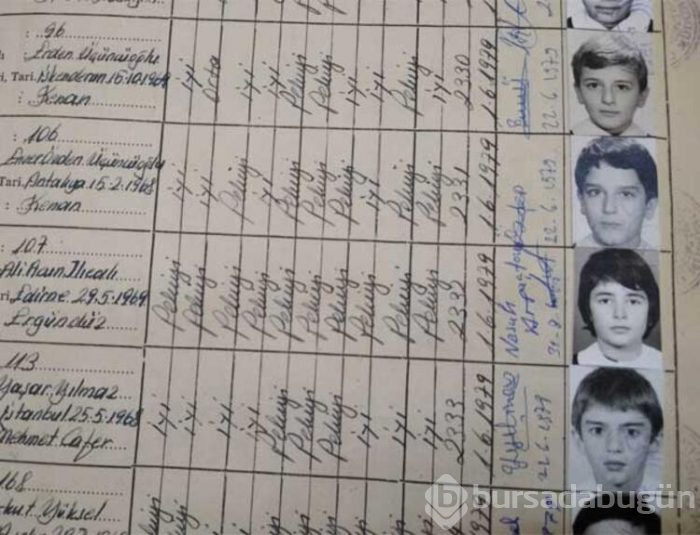 : 96
: Erden Üçüncüoğlu
i, Tari. İskenderun 15.10.1968
: Kenan
iyi Orta iyi iyi Pekiyi Pekiyi iyi iyi Pekiyi iyi 2330 1.6.1979
22.6.1979
: 106
Enver Erden Üçüncüoğlu
Tari. Antakya 15.2.1968
: Kenan
iyi iyi Pekiyi iyi Pekiyi Pekiyi Pekiyi iyi Pekiyi Pekiyi 2331 1.6.1979
22.6.1979
: 107
Ali Ihcalı
ri, Edirne 29.5.1969
Ergündüz
Pekiyi Pekiyi Pekiyi Pekiyi Pekiyi Pekiyi Pekiyi Pekiyi Pekiyi Pekiyi 2332 1.6.1979
: 113
Yaşar Yılmaz
İstanbul 25.5.1968
Mehmet Cafer
iyi iyi iyi iyi Pekiyi Pekiyi Pekiyi iyi iyi iyi 2333 1.6.1979
Y.Yılmaz
22.6.1979
168
Yüksel
bursadabugün